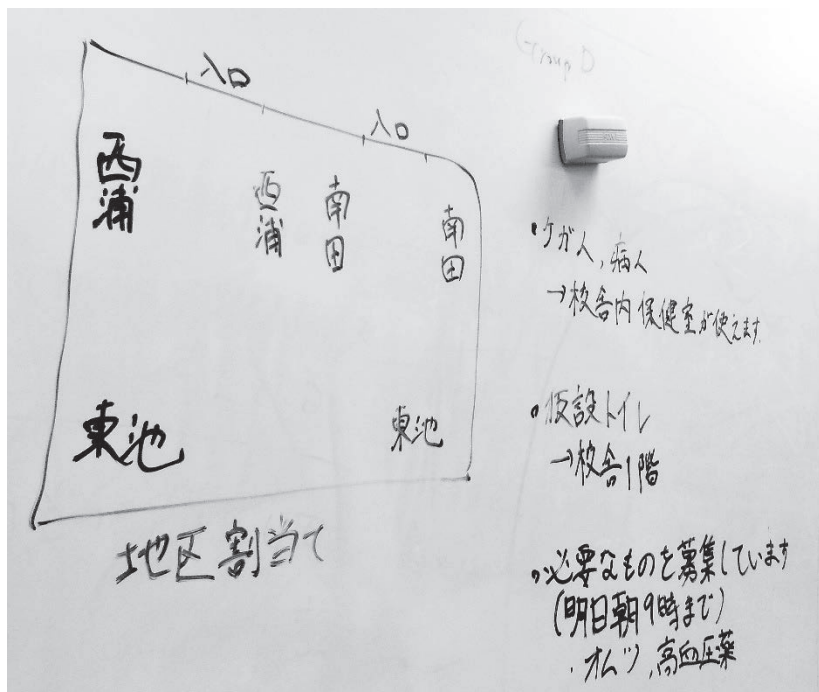 Group D
入口
入口
西浦
西浦
南田
南田
東池
東池
地区割当て
・ケガ人、病人
→校舎内保健室が使えます
・仮設トイレ
→校舎1階
・必要なものを募集しています
(明日朝9時まで)
・オムツ、高血圧薬